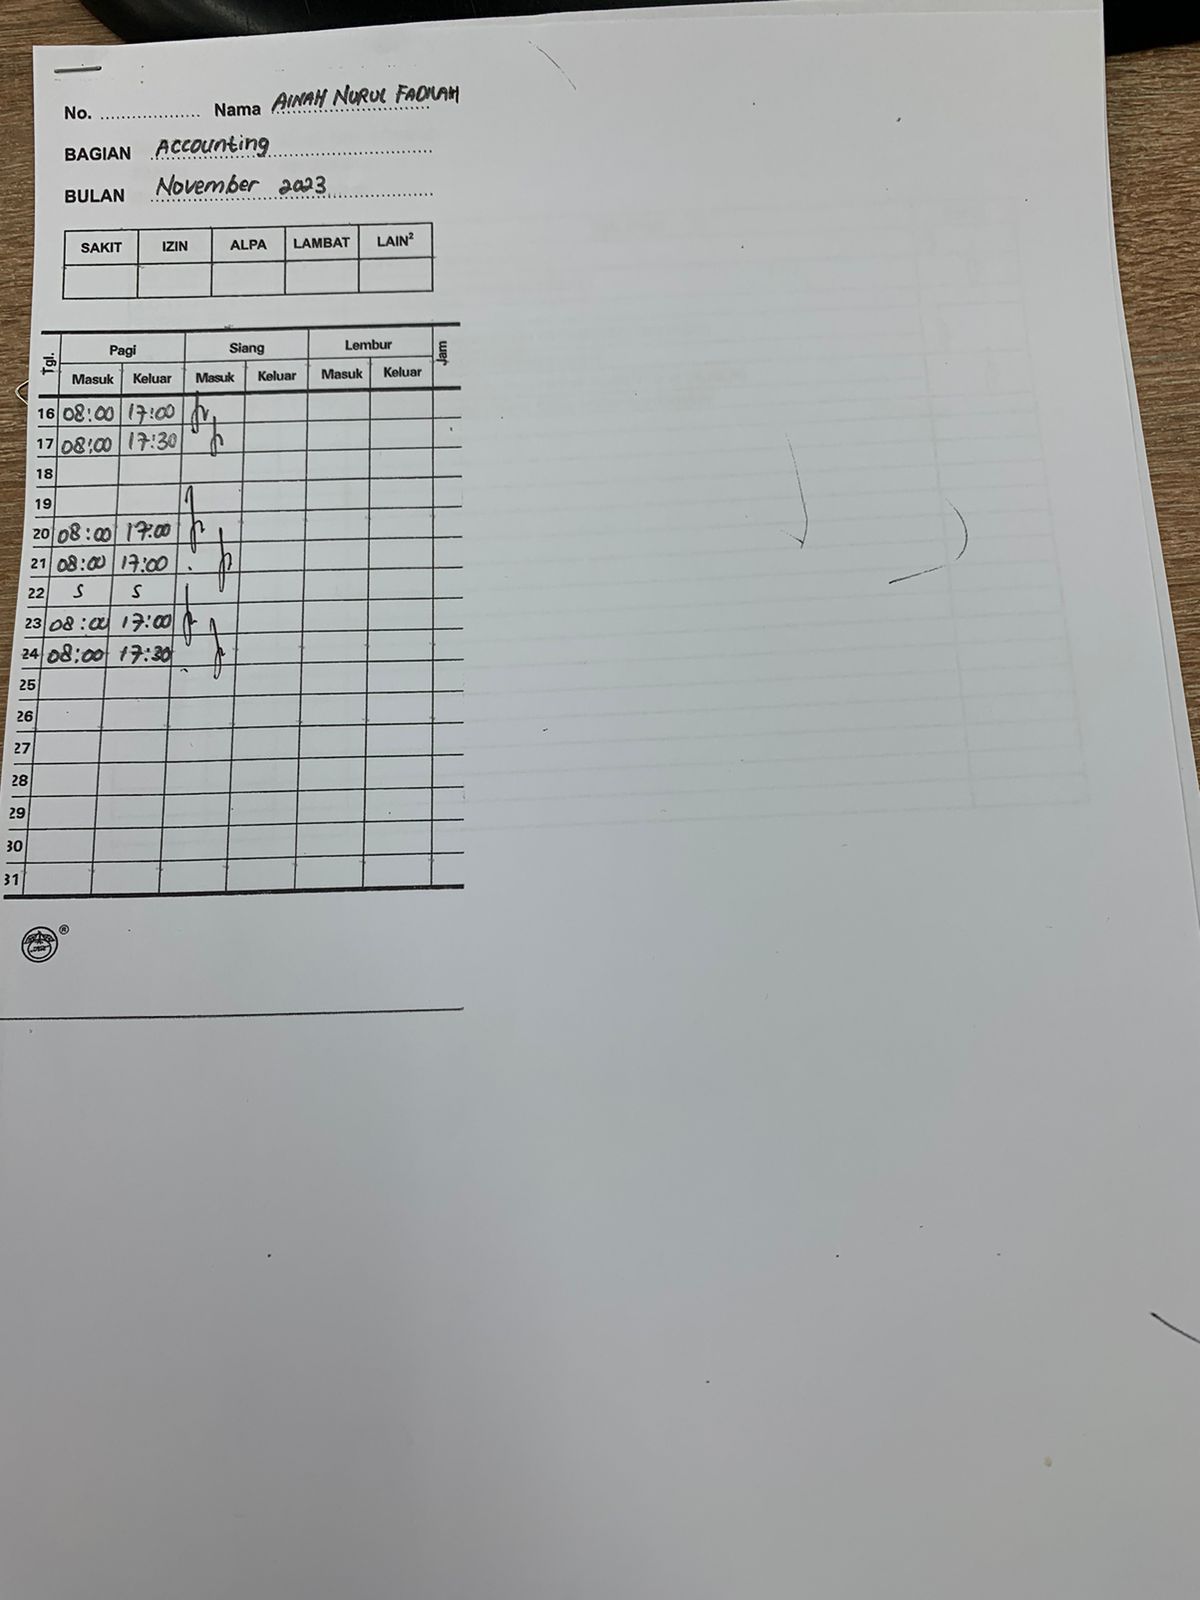 No. .................. Nama AINAH NURUL FADILAH
BAGIAN Accounting
BULAN November 2023
SAKIT IZIN ALPA LAMBAT LAIN²
Tgl. Pagi Siang Lembur Jam
Masuk Keluar Masuk Keluar Masuk Keluar
16 08:00 17:00
17 08:00 17:30
18
19
20 08:00 17:00
21 08:00 17:00
22 S S
23 08:00 17:00
24 08:00 17:30
25
26
27
28
29
30
31
®